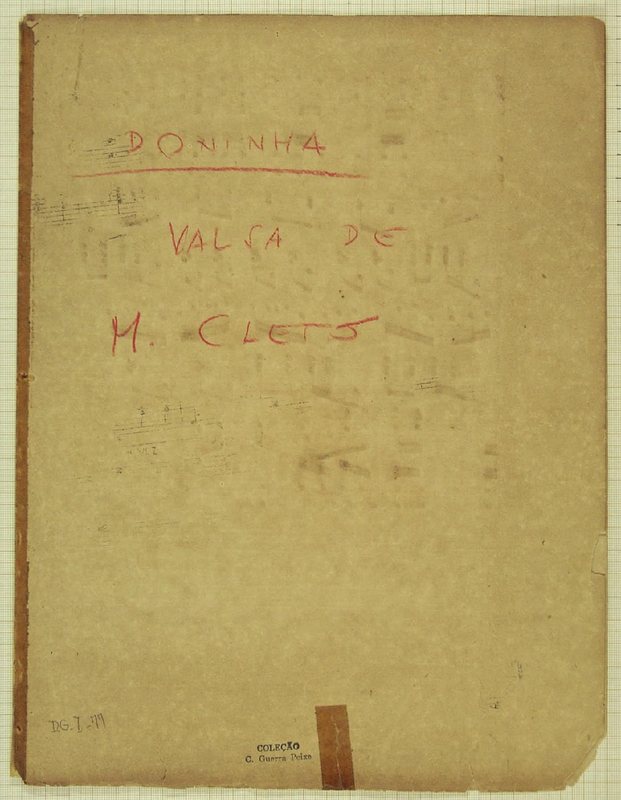 DONINHA
VALSA DE
M. CLETO
D.G. I-19
COLEÇÃO
C. Guerra Peixe